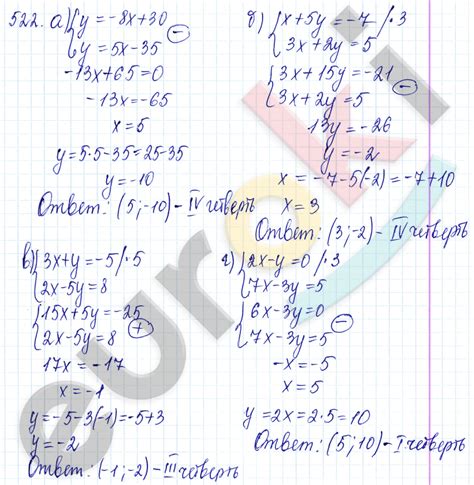 522. а) { y = -8x+30
y = 5x-35 (-)
-13x+65=0
-13x=-65
x=5
y=5·5-35=25-35
y=-10
Ответ: (5;-10)-IV четверть
б) { x+5y=-7 /·3
3x+2y=5
{ 3x+15y=-21 (-)
3x+2y=5
13y=-26
y=-2
x=-7-5(-2)=-7+10
x=3
Ответ: (3;-2)-IV четверть
в) { 3x+y=-5 /·5
2x-5y=8
{ 15x+5y=-25 (+)
2x-5y=8
17x=-17
x=-1
y=-5-3(-1)=-5+3
y=-2
Ответ: (-1;-2)-III четверть
г) { 2x-y=0 /·3
7x-3y=5
{ 6x-3y=0 (-)
7x-3y=5
-x=-5
x=5
y=2x=2·5=10
Ответ: (5;10)-I четверть
euroki